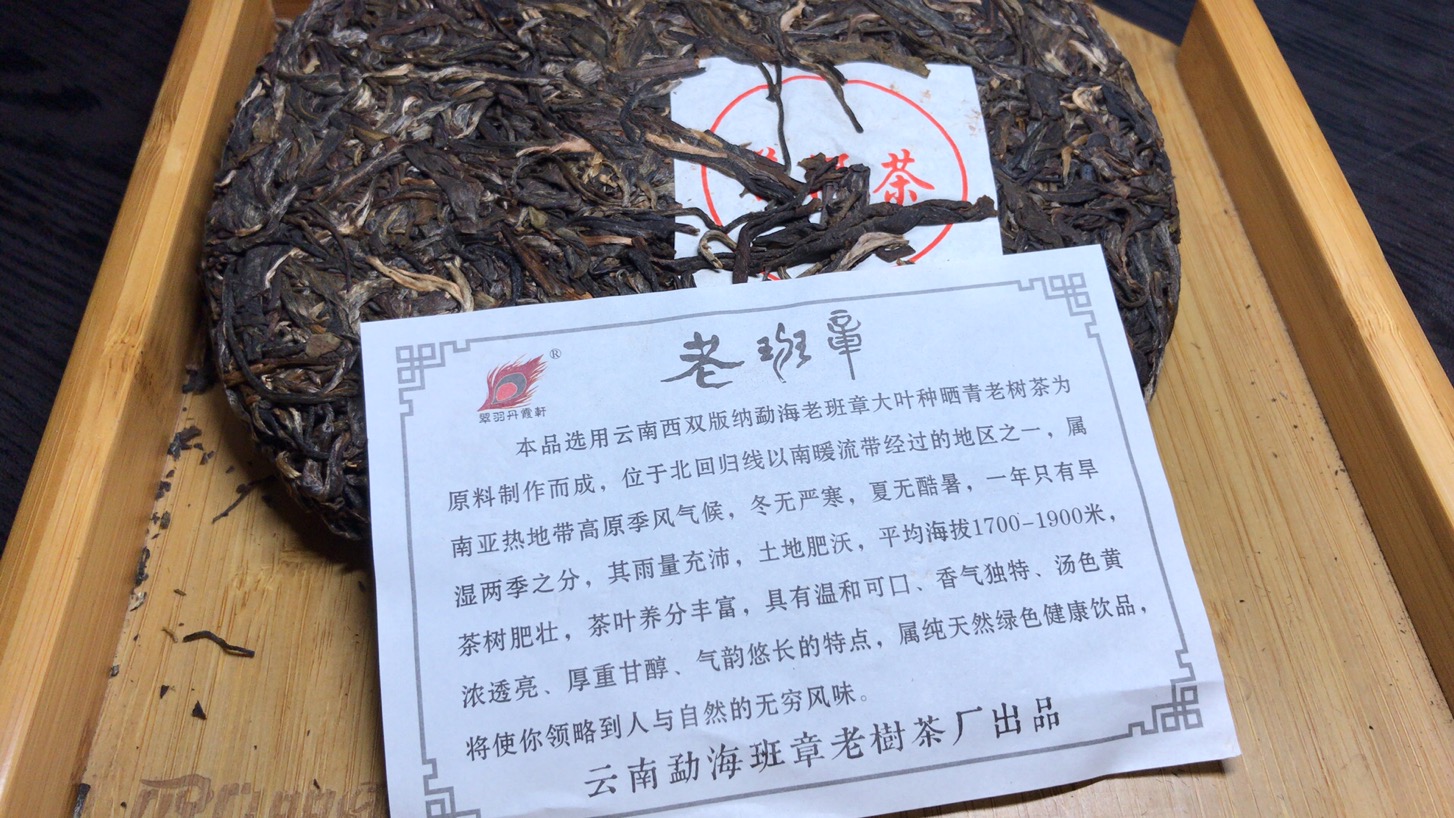 茶
老班章
®
翠羽丹霞軒
本品选用云南西双版纳勐海老班章大叶种晒青老树茶为
原料制作而成，位于北回归线以南暖流带经过的地区之一，属
南亚热地带高原季风气候，冬无严寒，夏无酷暑，一年只有旱
湿两季之分，其雨量充沛，土地肥沃，平均海拔1700-1900米，
茶树肥壮，茶叶养分丰富，具有温和可口、香气独特、汤色黄
浓透亮、厚重甘醇、气韵悠长的特点，属纯天然绿色健康饮品，
将使你领略到人与自然的无穷风味。
云南勐海班章老樹茶厂出品